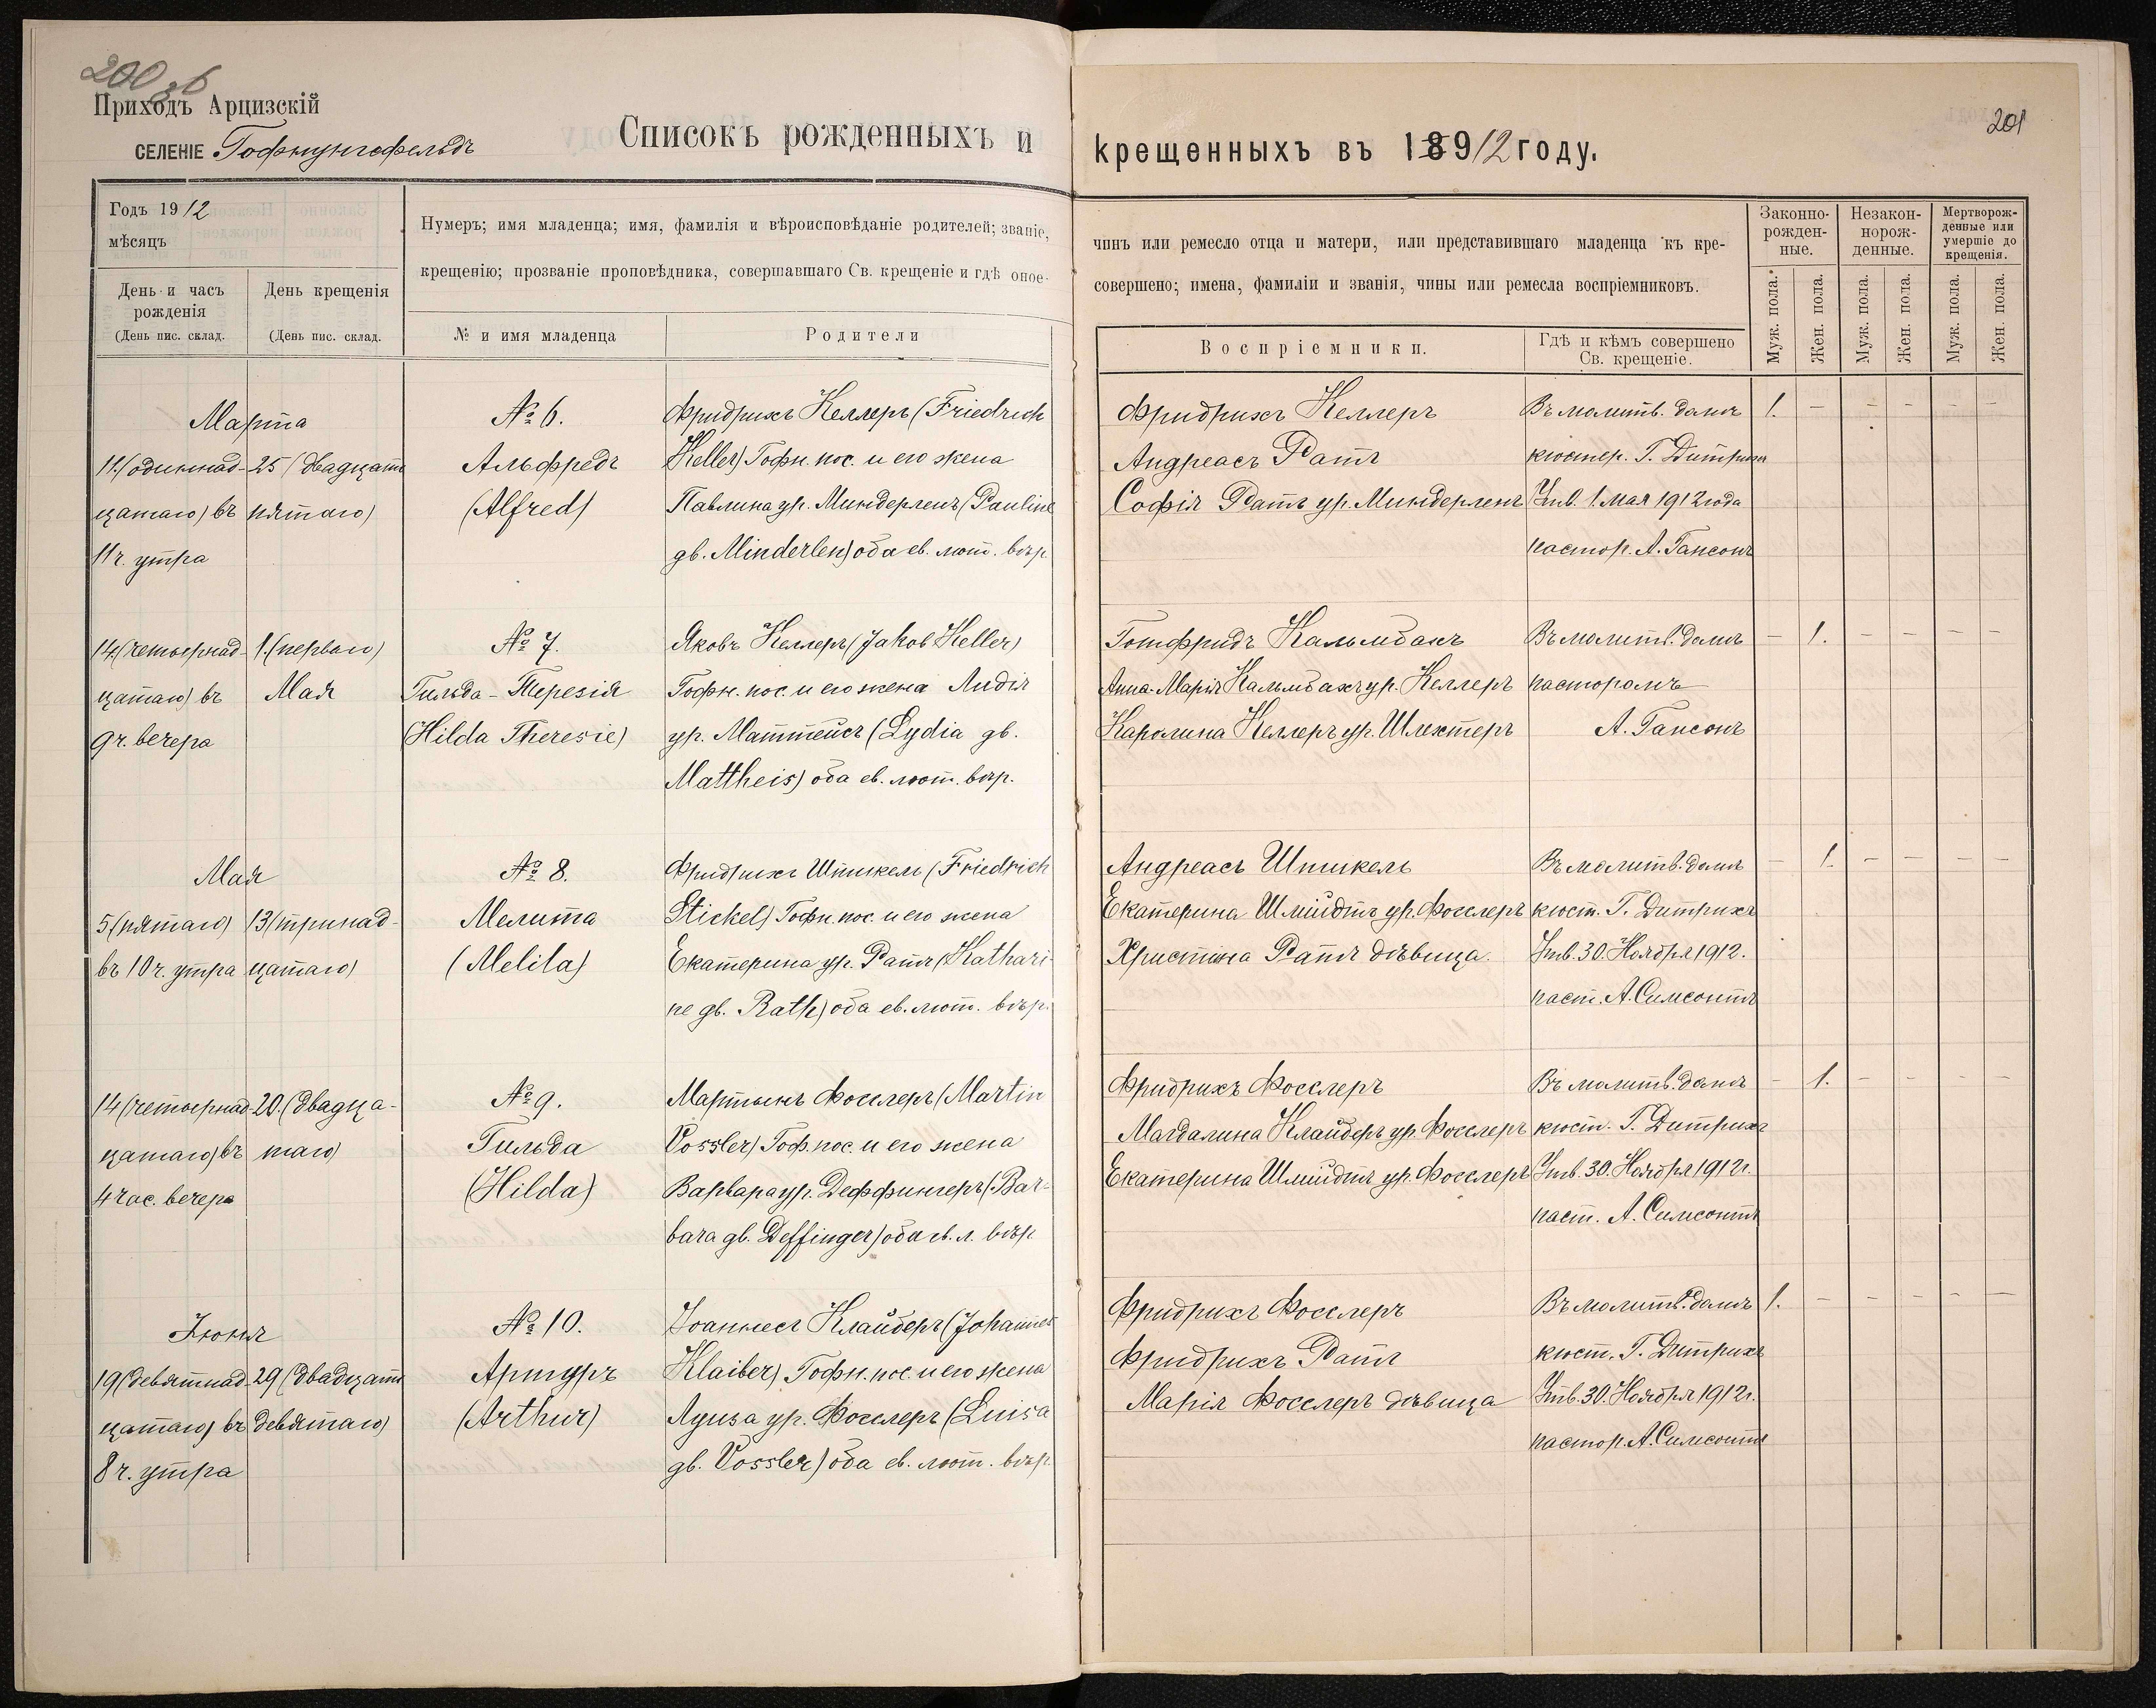 200 зб
Приходъ Арцизскій
СЕЛЕНІЕ Гофнунгсфельдъ
Списокъ рожденныхъ и
Годъ 1912
мѣсяцъ
День и часъ рожденія
(День пис. склад.
День крещенія
(День пис. склад.
Нумеръ; имя младенца; имя, фамилія и вѣроисповѣданіе родителей; званіе,
крещенію; прозваніе проповѣдника, совершавшаго Св. крещеніе и гдѣ оное-
№ и имя младенца
Родители
Марта
11.(одиннад-
цатаго) въ
11 ч. утра
25 (двадцать
пятаго)
№ 6.
Альфредъ
(Alfred)
Фридрихъ Келлеръ (Friedrich
Keller) Гофн. пос. и его жена
Павлина ур. Миндерленъ (Pauline
gb. Minderlen) оба ев. лют. вѣр.
14(четырнад-
цатаго) въ
9 ч. вечера
1.(перваго)
Мая
№ 7.
Гильда-Терезія
(Hilda Theresie)
Яковъ Келлеръ (Jakob Keller)
Гофн. пос. и его жена Лидія
ур. Маттейсъ (Lydia gb.
Mattheis) оба ев. лют. вѣр.
Мая
5 (пятаго)
въ 10 ч. утра
13 (тринад-
цатаго)
№ 8.
Мелита
(Melita)
Фридрихъ Штикель (Friedrich
Stickel) Гофн. пос. и его жена
Екатерина ур. Ратъ (Kathari-
ne gb. Rath) оба ев. лют. вѣр.
14 (четырнад-
цатаго) въ
4 час. вечера
20. (двадца-
таго)
№ 9.
Гильда
(Hilda)
Мартынъ Фосслеръ (Martin
Vossler) Гоф. пос. и его жена
Варвара ур. Деффингеръ (Bar-
bara gb. Deffinger) оба ев. л. вѣр.
Іюня
19 (девятнад-
цатаго) въ
8 ч. утра
29 (двадцать
девятаго)
№ 10.
Артуръ
(Arthur)
Іоаннесъ Клайберъ (Johannes
Klaiber) Гофн. пос. и его жена
Луиза ур. Фосслеръ (Luisa
gb. Vossler) оба ев. лют. вѣр.
201
крещенныхъ въ 18912 году.
чинъ или ремесло отца и матери, или представившаго младенца къ кре-
совершено; имена, фамиліи и званія, чины или ремесла воспріемниковъ.
Воспріемники.
Гдѣ и кѣмъ совершено
Св. крещеніе.
Законно-
рожден-
ные.
Незакон-
норож-
денные.
Мертворож-
денные или
умершіе до
крещенія.
Муж. пола.
Жен. пола.
Муж. пола.
Жен. пола.
Муж. пола.
Жен. пола.
Фридрихъ Келлеръ
Андреасъ Ратъ
Софія Ратъ ур. Миндерленъ
Въ молитв. домѣ
кюстер. Г. Дитрихъ
Утв. 1. Мая 1912 года
пастор. А. Гансонъ
1. – – – – –
Готфридъ Кальмбахъ
Анна-Марія Кальмбахъ ур. Келлеръ
Каролина Келлеръ ур. Шлехтеръ
Въ молитв. домѣ
пасторомъ
А. Гансонъ
– 1. – – – –
Андреасъ Штикель
Екатерина Шмидтъ ур. Фосслеръ
Христина Ратъ дѣвица.
Въ молитв. домѣ
кюст. Г. Дитрихъ
Утв. 30. Ноября 1912.
паст. А. Симсонъ
– 1. – – – –
Фридрихъ Фосслеръ
Магдалина Клайберъ ур. Фосслеръ
Екатерина Шмидтъ ур. Фосслеръ
Въ молитв. домѣ
кюст. Г. Дитрихъ
Утв. 30. Ноября 1912 г.
паст. А. Симсонъ
– 1. – – – –
Фридрихъ Фосслеръ
Фридрихъ Ратъ
Марія Фосслеръ дѣвица
Въ молитв. домѣ
кюст. Г. Дитрихъ
Утв. 30. Ноября 1912 г.
пастор. А. Симсонъ
1. – – – – –